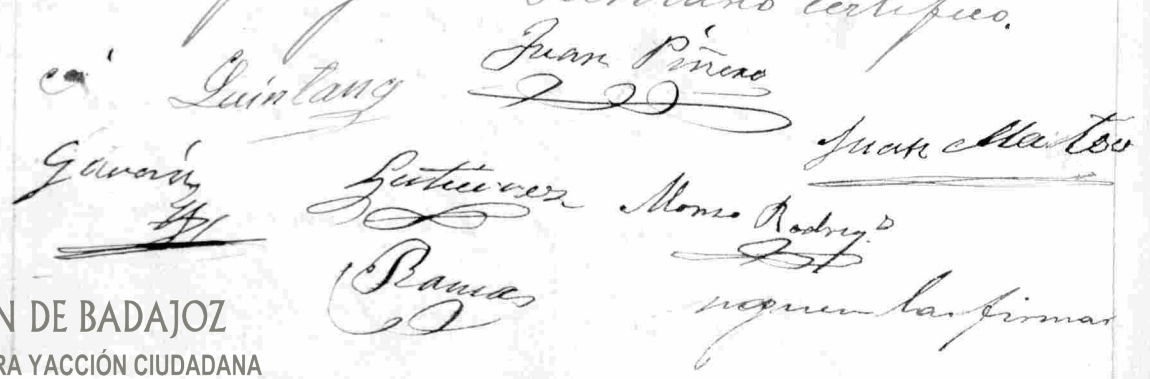 certifico.
Juan Piñero
Quintana
Juan Mateo
Gaván
Gutierrez
Alonso Rodrig.º
Ramos
siguen las firmas
N DE BADAJOZ
RA Y ACCIÓN CIUDADANA